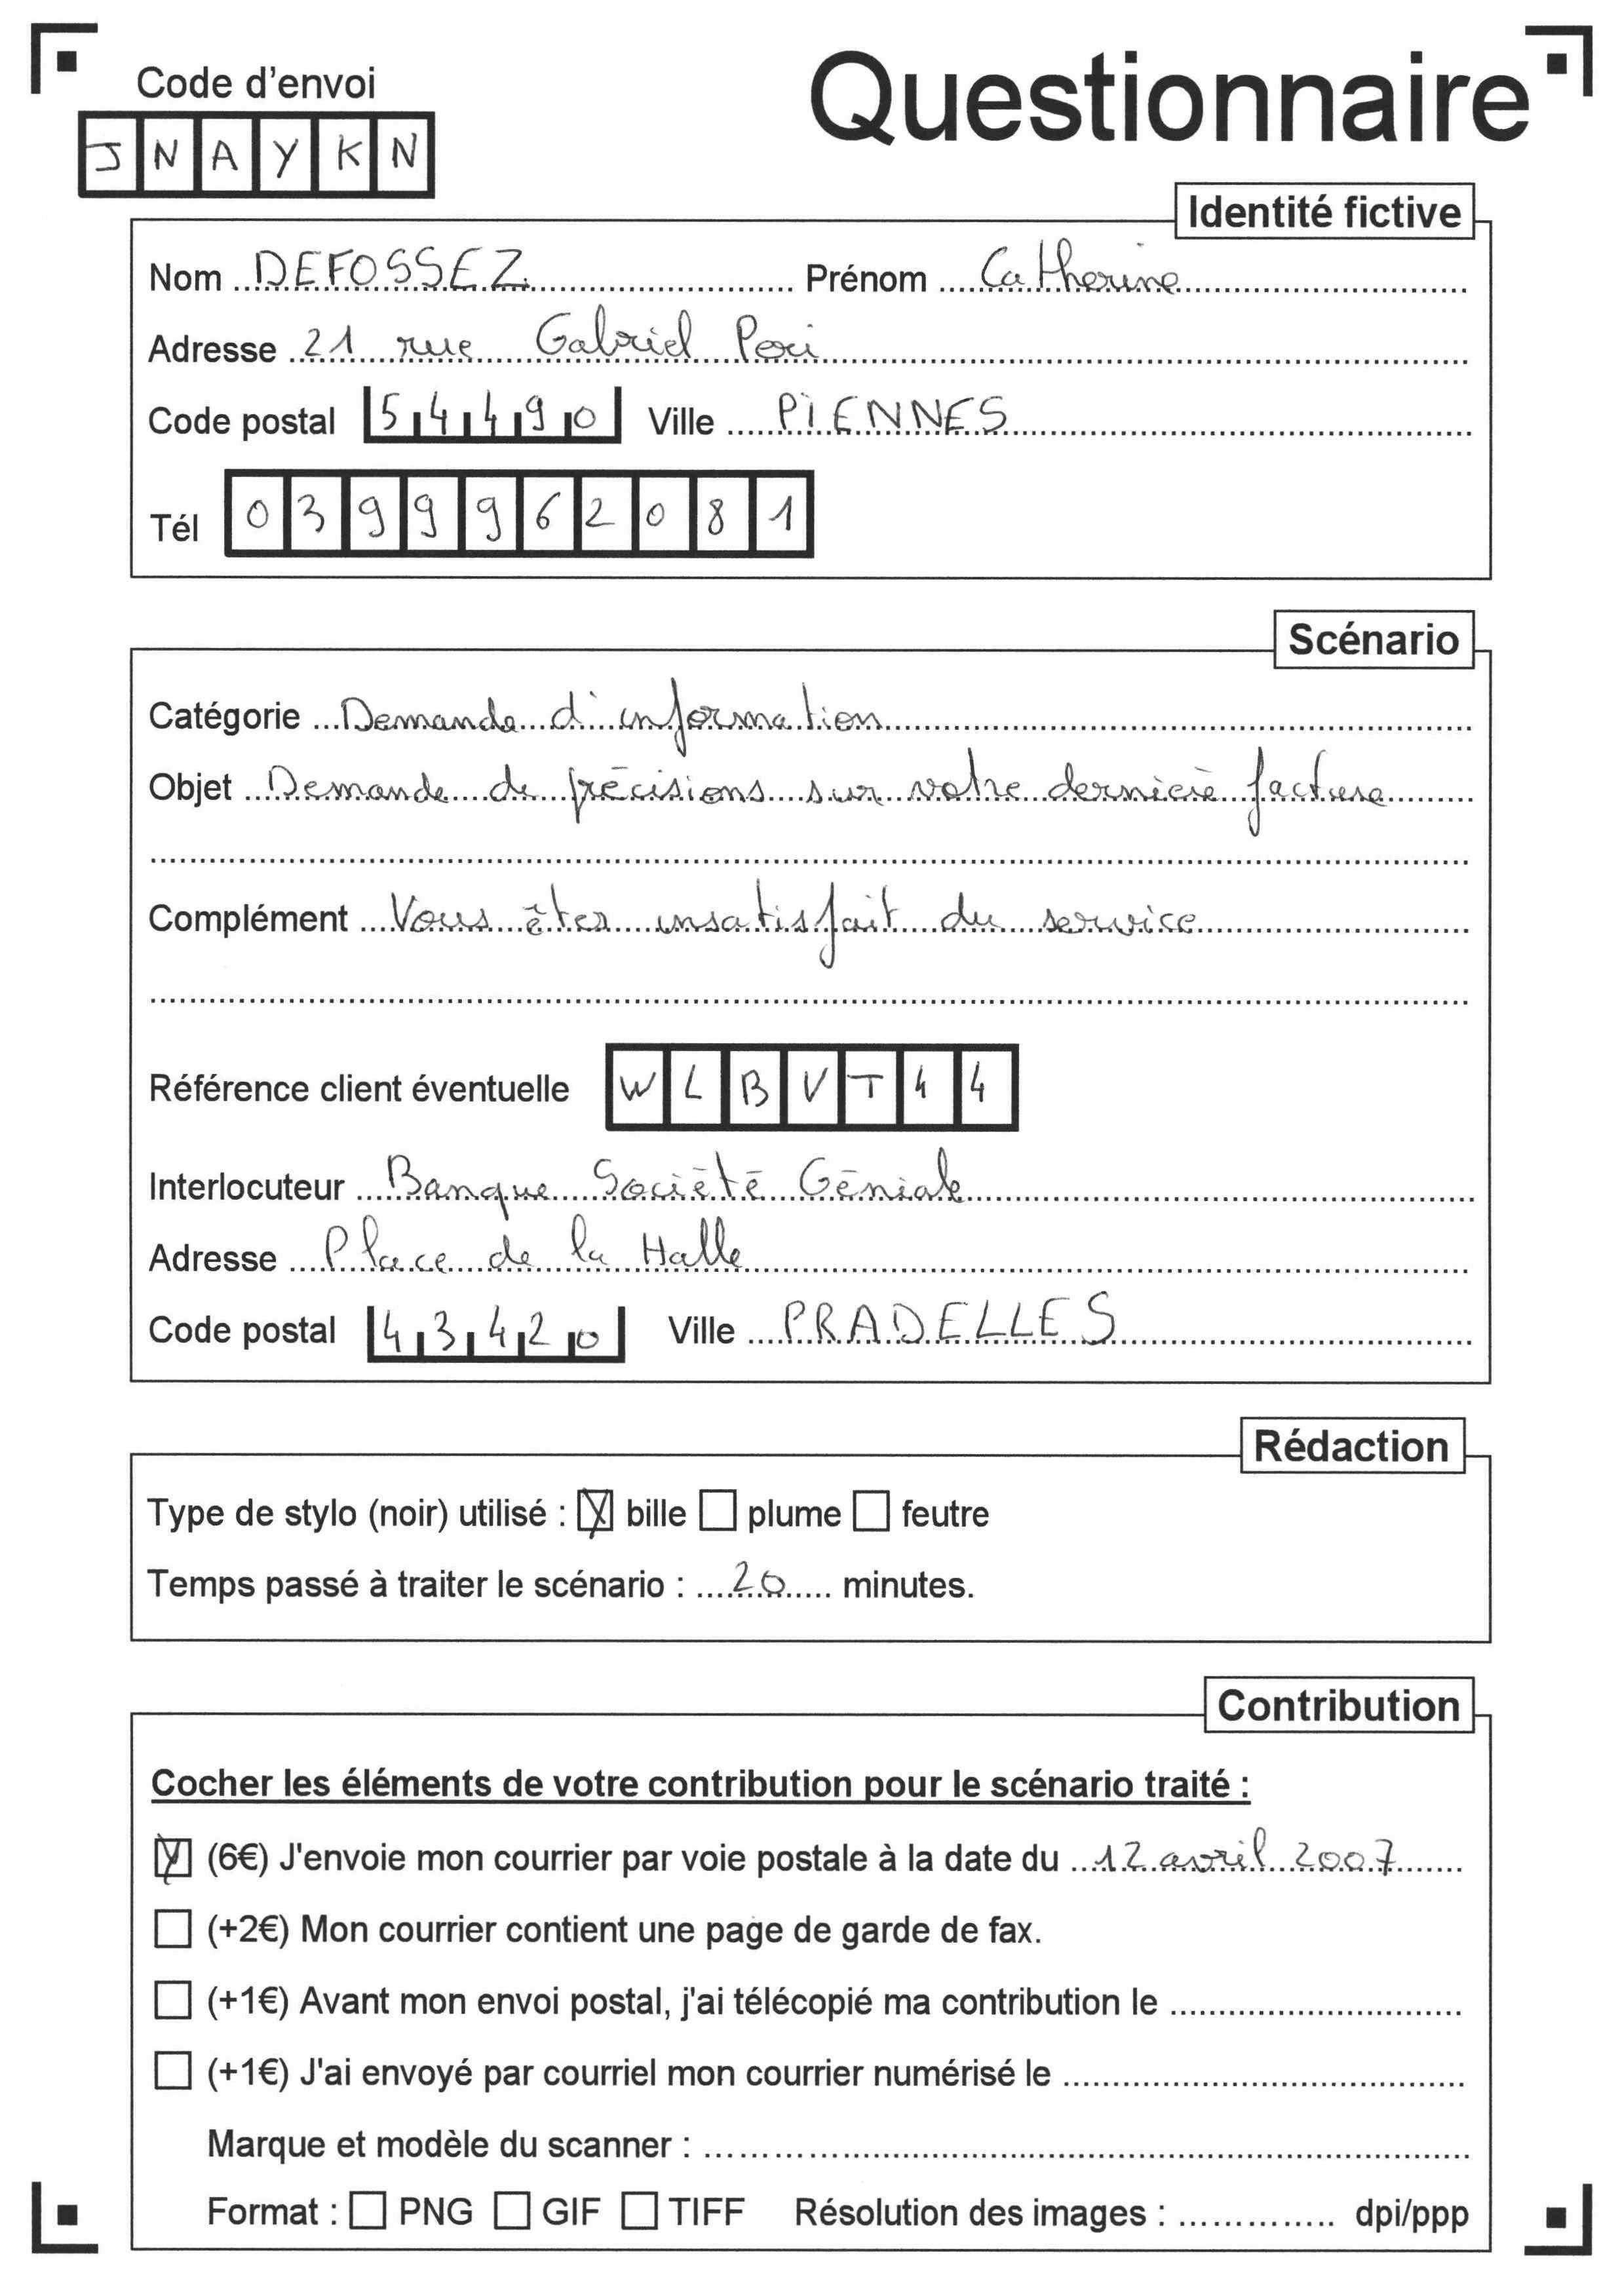 Code d'envoi
Questionnaire
JNAYKN
Identité fictive
Nom DEFOSSEZ Prénom Catherine
Adresse 21 rue Gabriel Peri
Code postal 54490 Ville PIENNES
Tél 0399962081
Scénario
Catégorie Demande d'information
Objet Demande de précisions sur votre dernière facture
Complément Vous êtes insatisfait du service
Référence client éventuelle WLBVT44
Interlocuteur Banque Société Géniale
Adresse Place de la Halle
Code postal 43420 Ville PRADELLES
Rédaction
Type de stylo (noir) utilisé : ☒ bille ☐ plume ☐ feutre
Temps passé à traiter le scénario : 20 minutes.
Contribution
Cocher les éléments de votre contribution pour le scénario traité :
☒ (6€) J'envoie mon courrier par voie postale à la date du 12 avril 2007
☐ (+2€) Mon courrier contient une page de garde de fax.
☐ (+1€) Avant mon envoi postal, j'ai télécopié ma contribution le
☐ (+1€) J'ai envoyé par courriel mon courrier numérisé le
Marque et modèle du scanner :
Format : ☐ PNG ☐ GIF ☐ TIFF Résolution des images : dpi/ppp